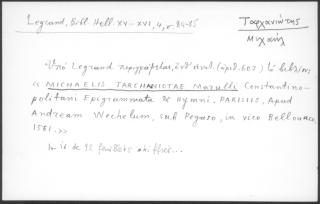 Legrand, Bibl. Hell. XV-XVI, 4, σ. 84-85
Ταρχανιώτης
Μιχαήλ
Ὑπὸ Legrand περιγράφεται, (ἀριθ. 607) τὸ
« MICHAELIS TARCHANIOTAE Marulli Constantino-
politani Epigrammata & Hymni. PARISIIS, Apud
Andream Wechelum, sub Pegaso, in vico Bellouaco,
1561. »
In 16 de 92 feuillets chiffrés...